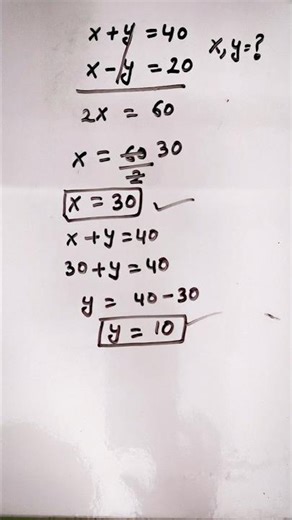 x + y = 40
x - y = 20
x, y = ?
2x = 60
x = 60/2 30
x = 30
x + y = 40
30 + y = 40
y = 40 - 30
y = 10